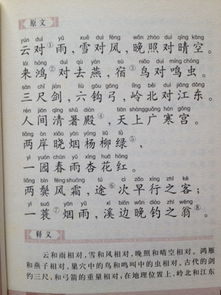 原文
yún duì yǔ xuě duì fēng wǎn zhào duì qíng kōng
云对①雨，雪对风，晚照对晴空。
lái hóng duì qù yàn sù niǎo duì míng chóng
来鸿②对去燕，宿③鸟对鸣虫。
sān chǐ jiàn liù jūn gōng lǐng běi duì jiāng dōng
三尺剑，六钧弓，岭北对江东。
rén jiān qīng shǔ diàn tiān shàng guǎng hán gōng
人间清暑殿④，天上广寒宫。
liǎng àn xiǎo yān yáng liǔ lǜ
两岸晓烟杨柳绿，
yì yuán chūn yǔ xìng huā hóng
一园春雨杏花红。
liǎng bìn fēng shuāng tú cì zǎo xíng zhī kè
两鬓风霜，途⑥次早行之客；
yì suō yān yǔ xī biān wǎn diào zhī wēng
一蓑⑦烟雨，溪边晚钓之翁⑧。
释义
云和雨相对，雪和风相对，晚照和晴空相对。鸿雁
和燕子相对，巢穴中的鸟和鸣叫中的虫相对，古代的剑
约三尺，和弓箭的重量相对，在地理位置上，岭北和江东